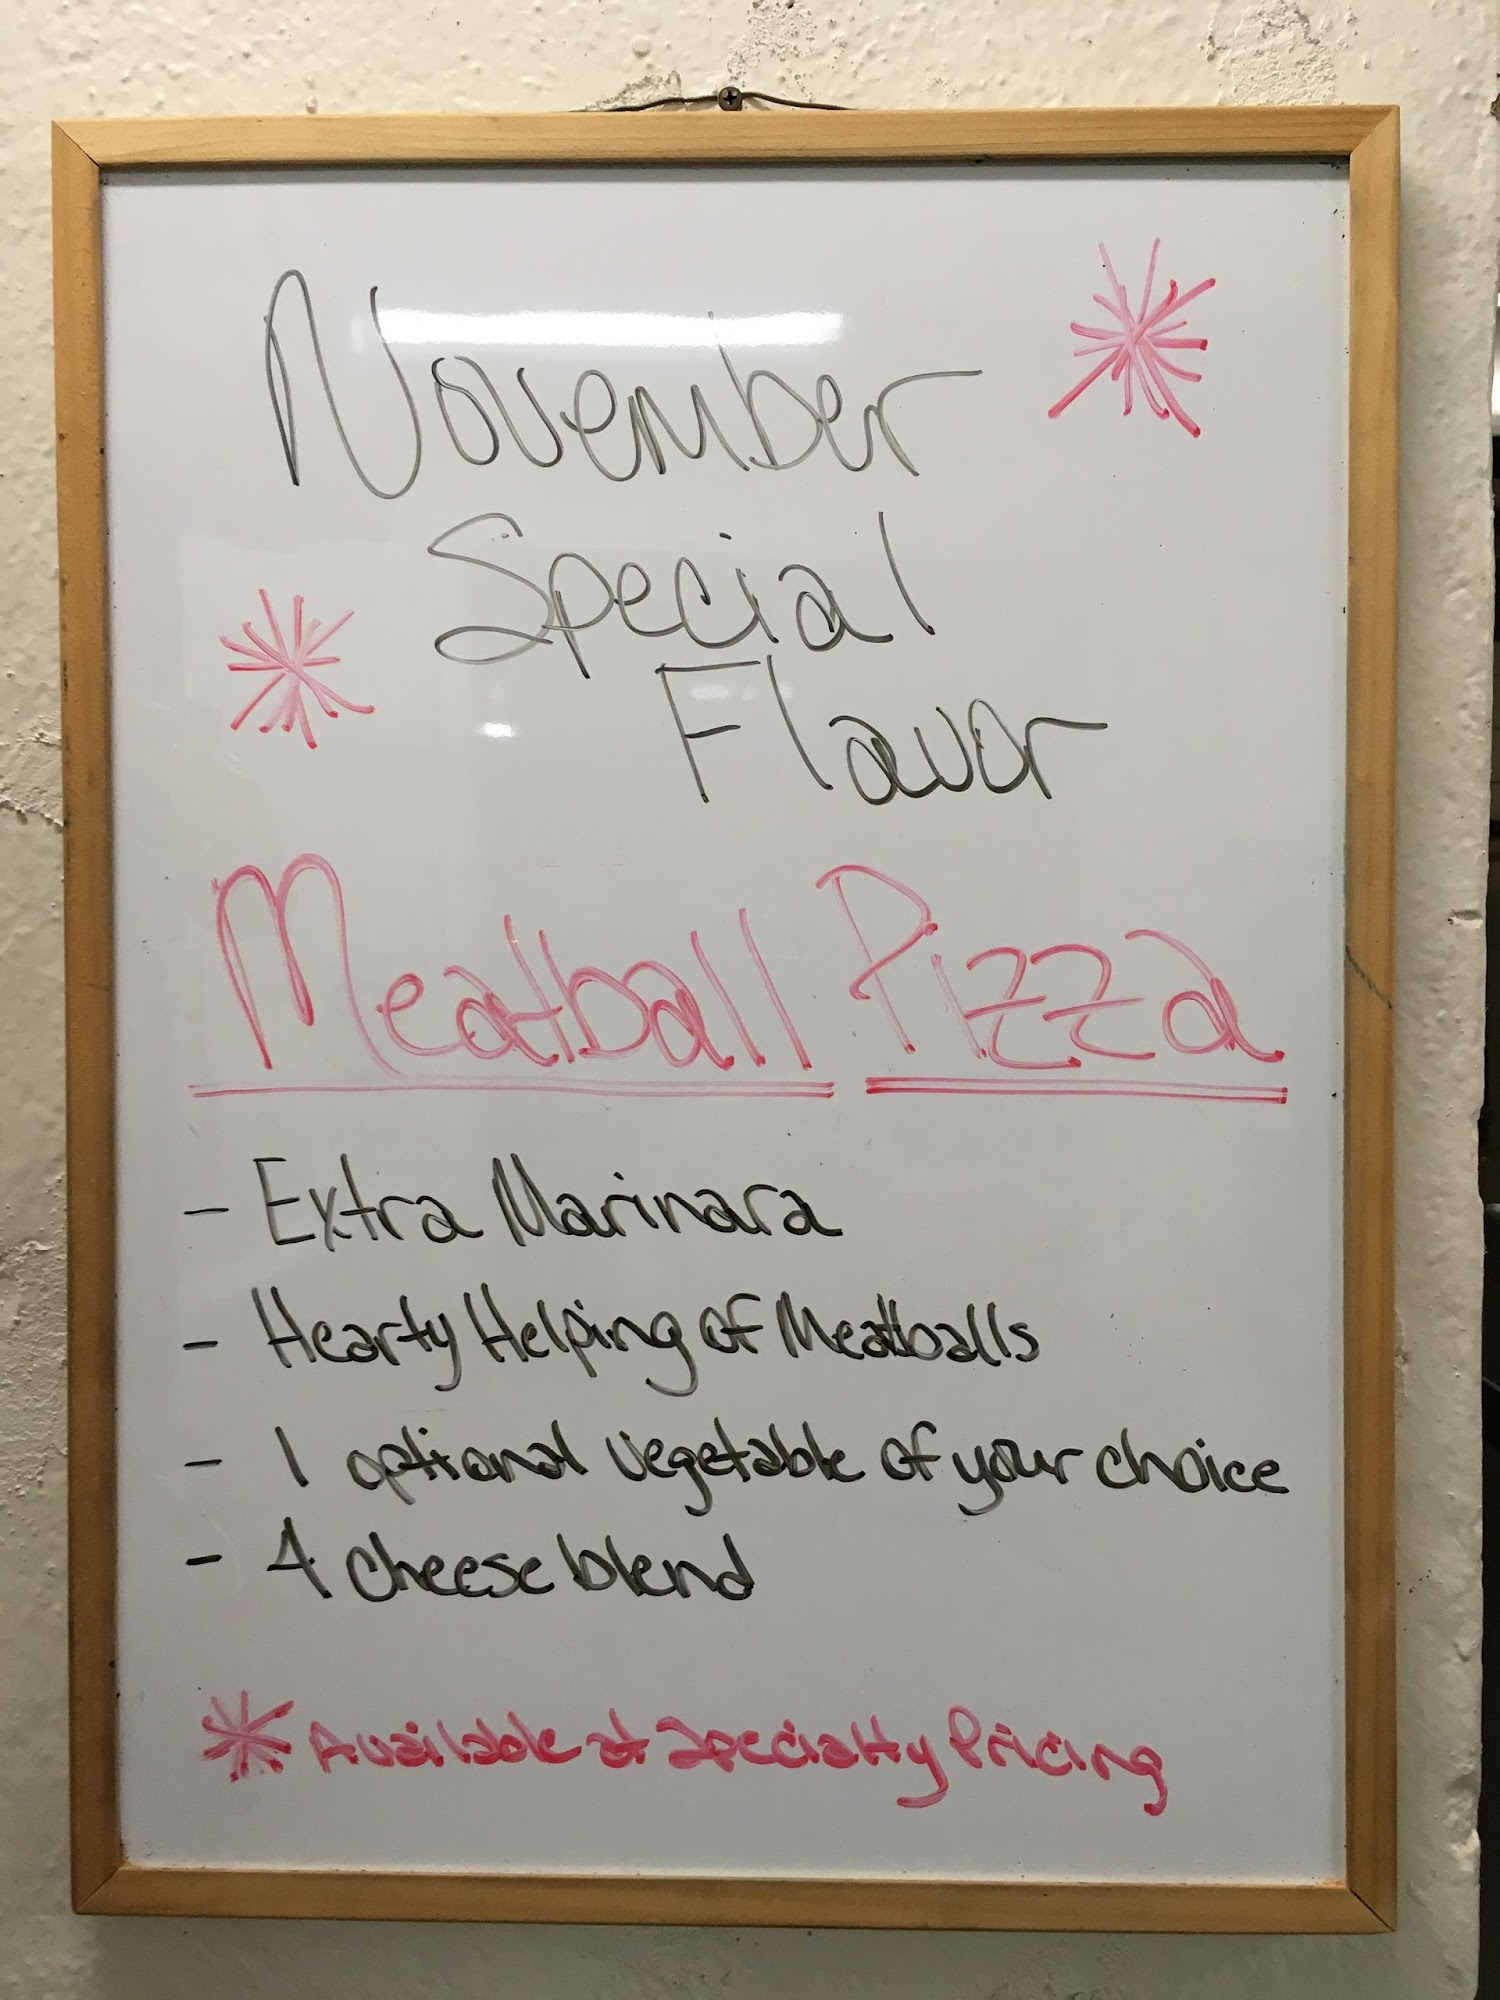 November
Special
Flavor
Meatball Pizza
- Extra Marinara
- Hearty Helping of Meatballs
- 1 optional vegetable of your choice
- 4 cheese blend
* Available at Specialty Pricing